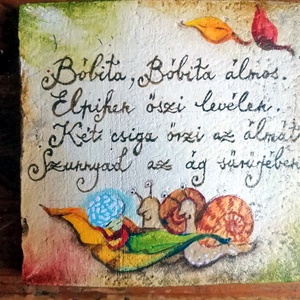 Bóbita, Bóbita álmos.
Elpihen őszi levélen.
Két csiga őrzi az álmát
Szunnyad az ág sűrűjében